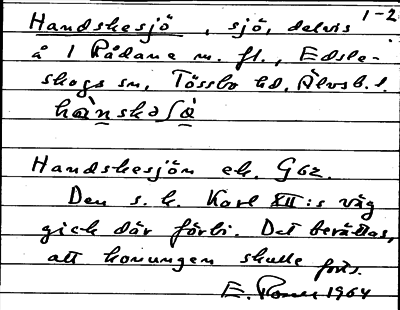 1-2
Handskesjö, sjö, delvis
å 1 Rådane m. fl., Edsle-
skogs sn, Tössbo hd, Älvsb. l.
Handskesjön ek. G6z.
Den s. k. Karl XII:s väg
gick där förbi. Det berättas,
att konungen skulle forts.
E. 1964